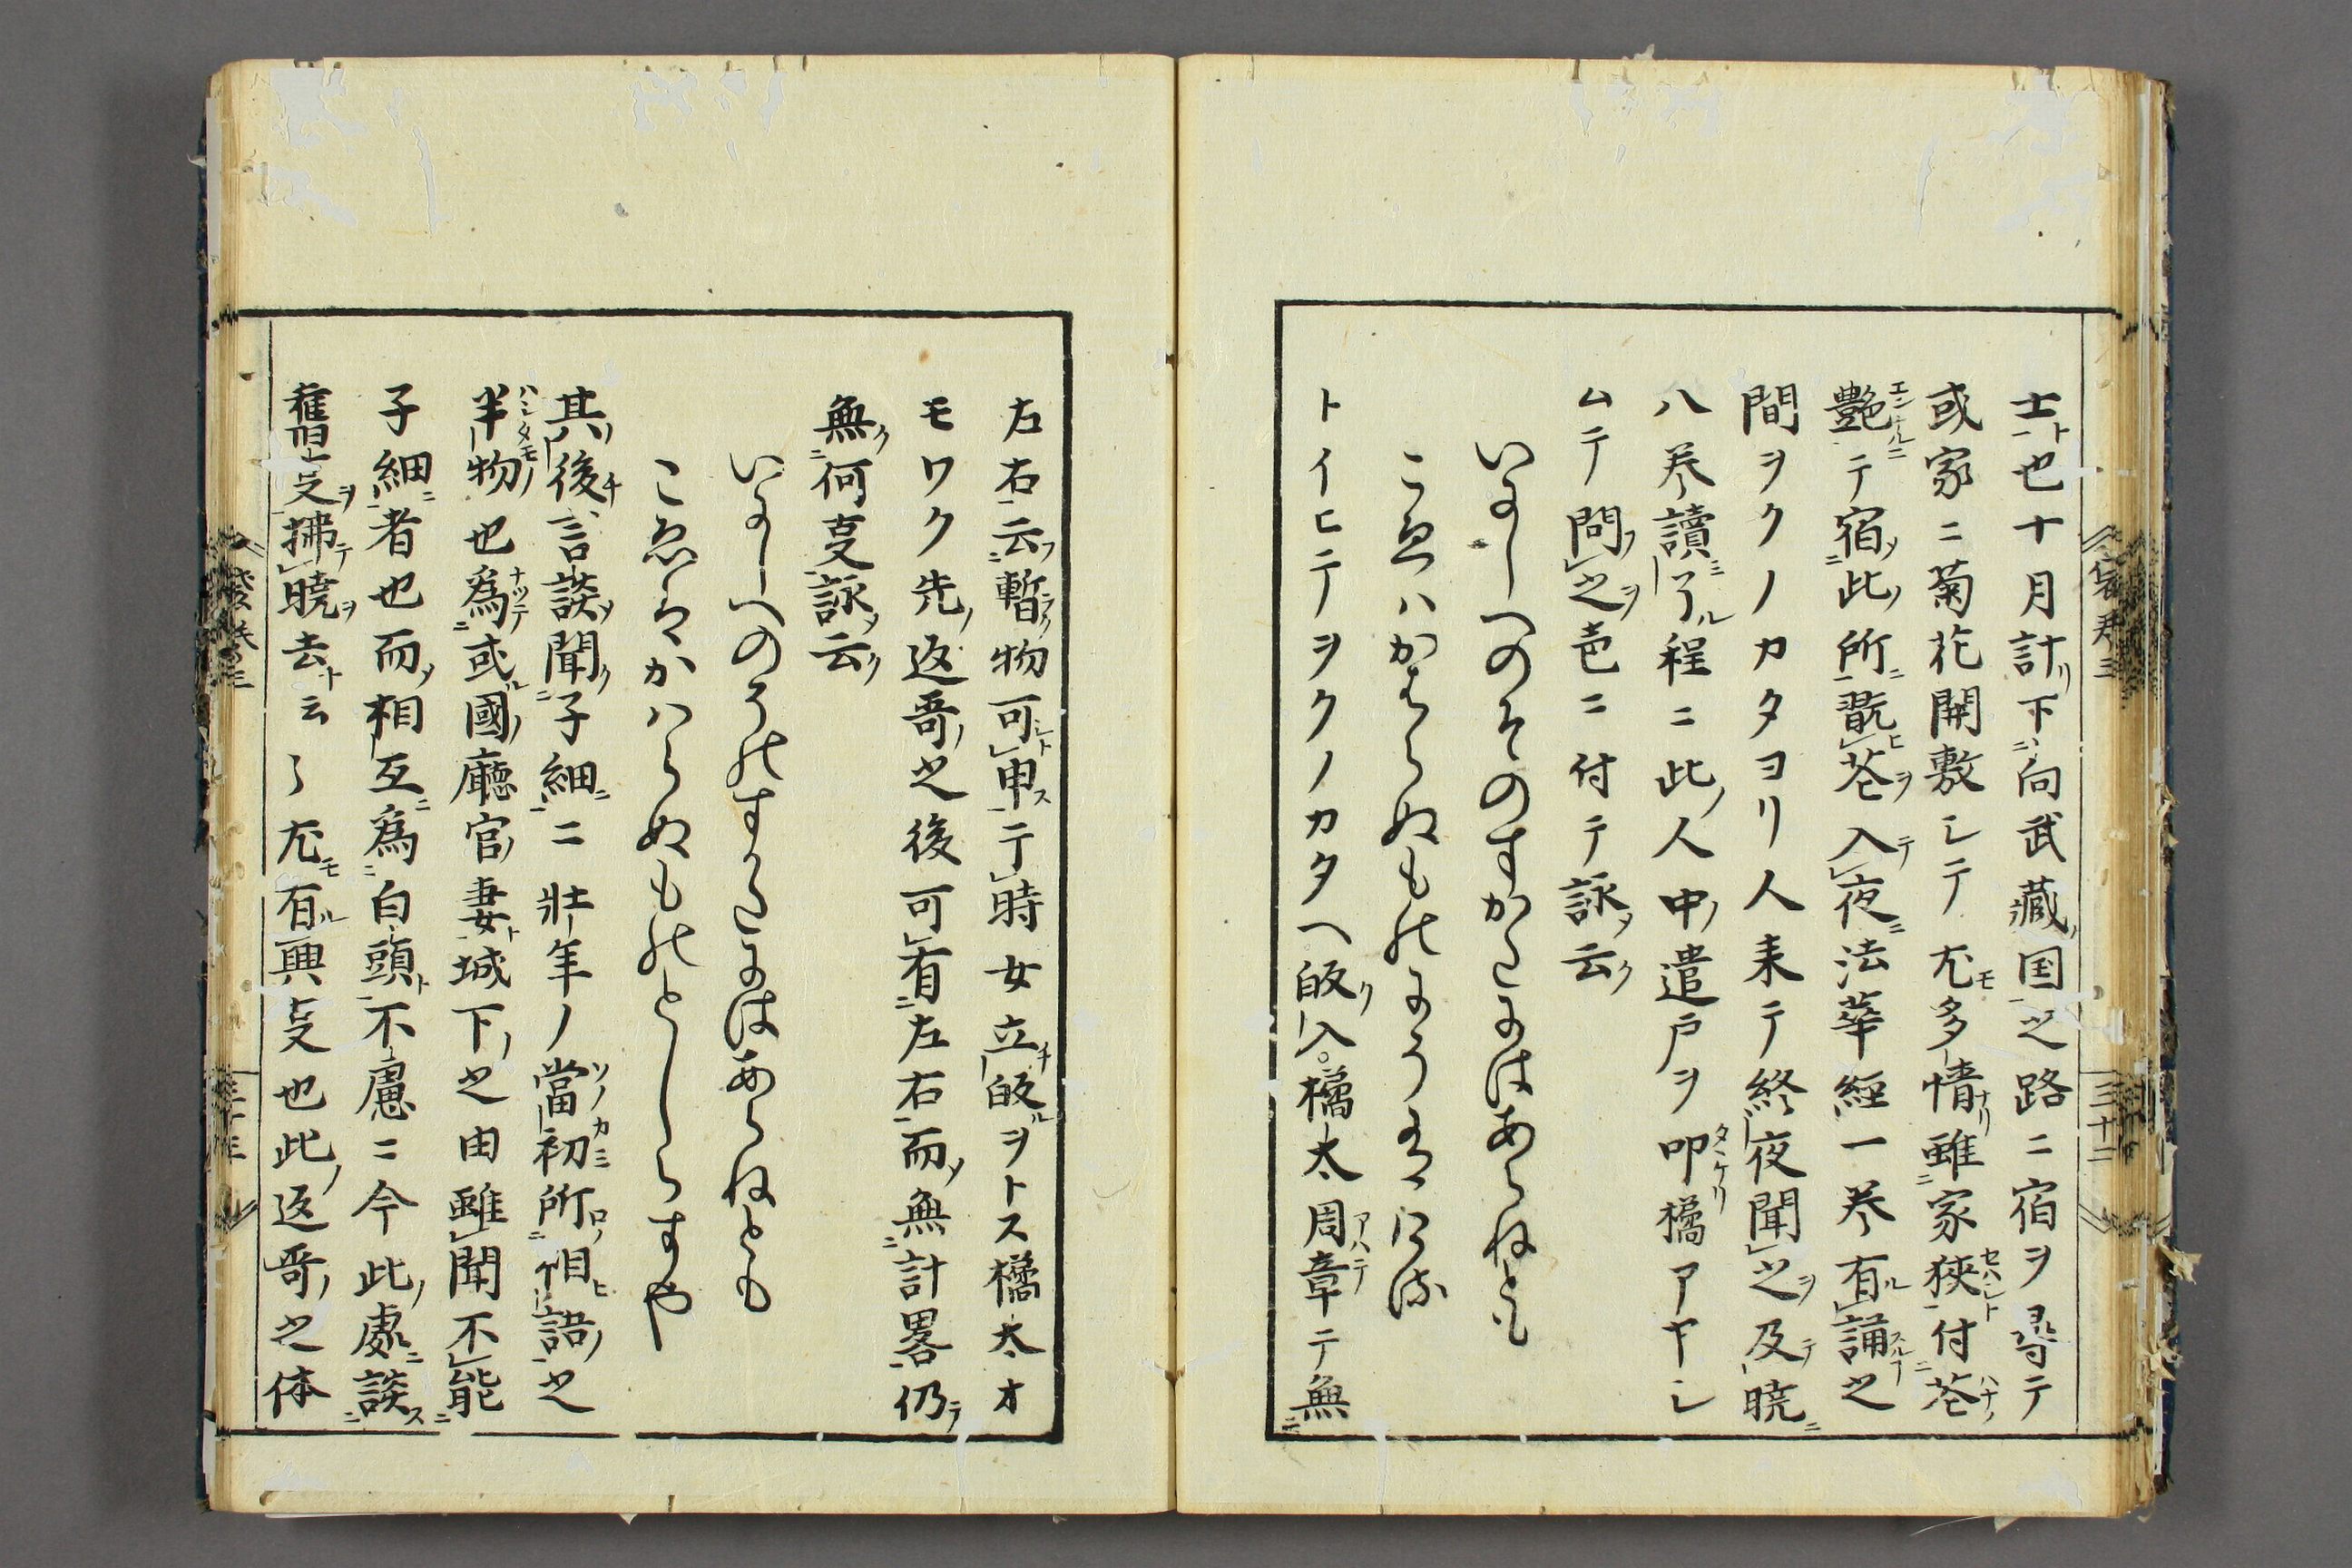 士也十月計下向武藏国之路ニ宿ヲ尋テ
或家ニ菊花開敷シテ尤多情雖家狹付花
艶テ宿此所翫花入夜法華經一巻有誦之
間ヲクノカタヨリ人来テ終夜聞之及暁
八巻讀了程ニ此人中遣戸ヲ叩橘アヤシ
ムテ問之壱ニ付テ詠云
いにしへのそのすかたにはあらねとも
こゑハかはらぬものにそ
トイヒテヲクノカタヘ皈入橘太周章テ無
左右云暫物可申テ時女立皈ヲトス橘太オ
モワク先返哥之後可有左右而無計畧仍
無何叓詠云
いにしへのそのすかたにはあらねとも
こゑはかハらぬものとしらすや
其後言談聞子細ニ壯年ノ當初所相語之
半物也爲或國廳官妻城下之由雖聞不能
子細者也而相互爲白頭不慮ニ今此處談
舊叓拂暁去云々尤有興叓也此返哥之体